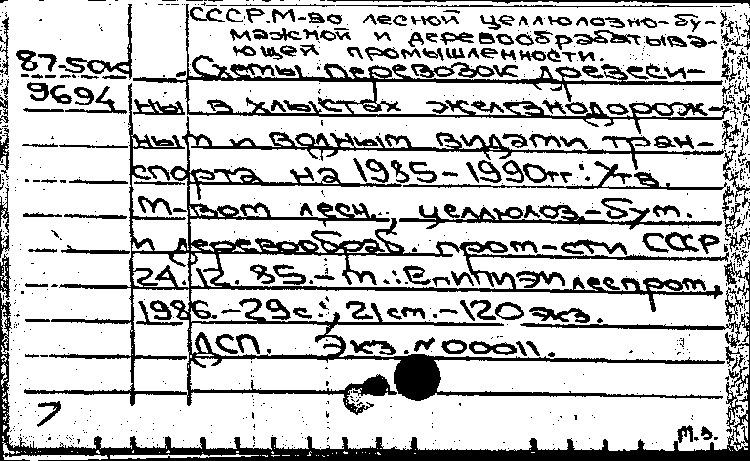 СССР. М-во лесной целлюлозно-бу-
мажной и деревообрабатыва-
ющей промышленности.
87-50к Схемы перевозок древеси-
9694 ны в хлыстах железнодорож-
ным и водным видами тран-
спорта на 1985-1990гг: Утв.
М-вом лесн., целлюлоз.-бум.
и деревообраб. пром-сти СССР
24.12.85.- М.: ВНИПИЭИлеспром,
1986.-29с.; 21см.-120экз.
ДСП. Экз. N 00011.
7
м.з.